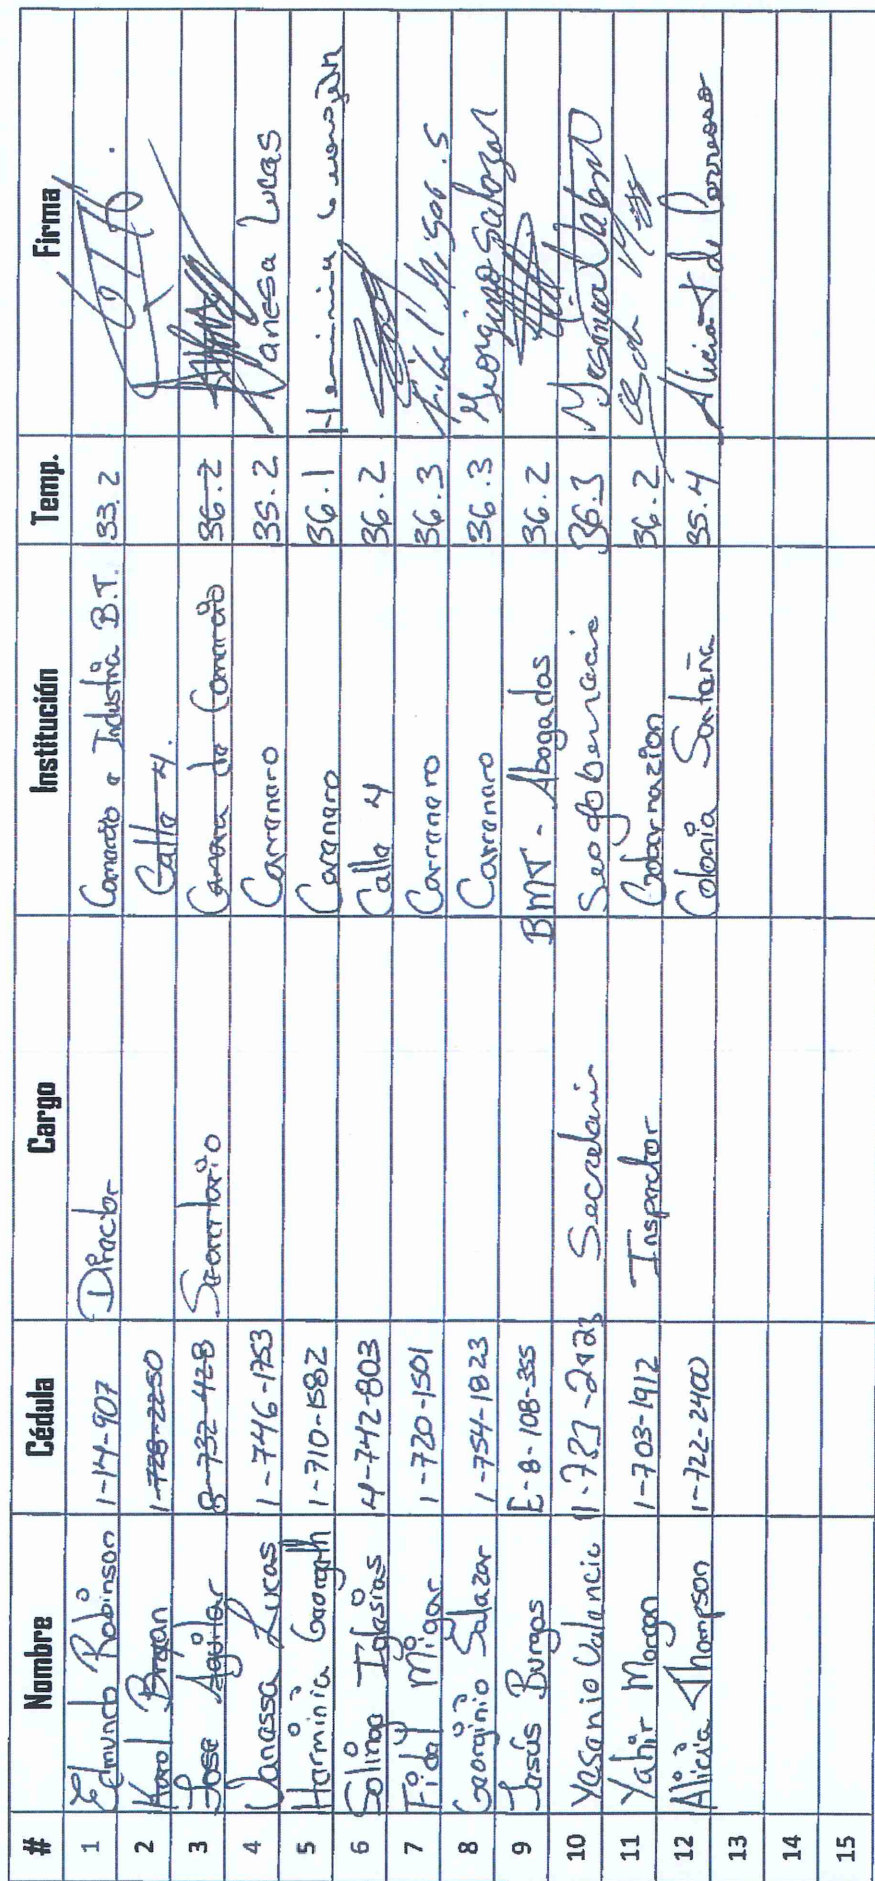 # Nombre Cédula Cargo Institución Temp. Firma
1 Edmundo Robinson 1-14-907 Director Comercio e Industria B.T. 33.2
2 Karol Bryan 1-728-2250 Calle 4.
3 Jose Aguilar 8-732-428 Secretario Camara de Comercio 36.2
4 Vanessa Lucas 1-746-1753 Carenero 35.2 Vanessa Lucas
5 Herminia 1-710-1582 Carenero 36.1 Herminia
6 Solinao Iglesias 4-742-803 Calle 4 36.2
7 Fidel Migar 1-720-1501 Carenero 36.3 Fidel
8 Georginio Salazar 1-754-1823 Carenero 36.3 Georgino Salazar
9 Jesús Burgos E-8-108-355 BMT - Abogados 36.2
10 Yesenia Valencia 1-727-2423 Secretari 36.3
11 Yahir Morgan 1-703-1912 Inspector Gobernazion 36.2
12 Alicia Thompson 1-722-2400 Colonia Santaña 35.4 Alicia T de
13
14
15